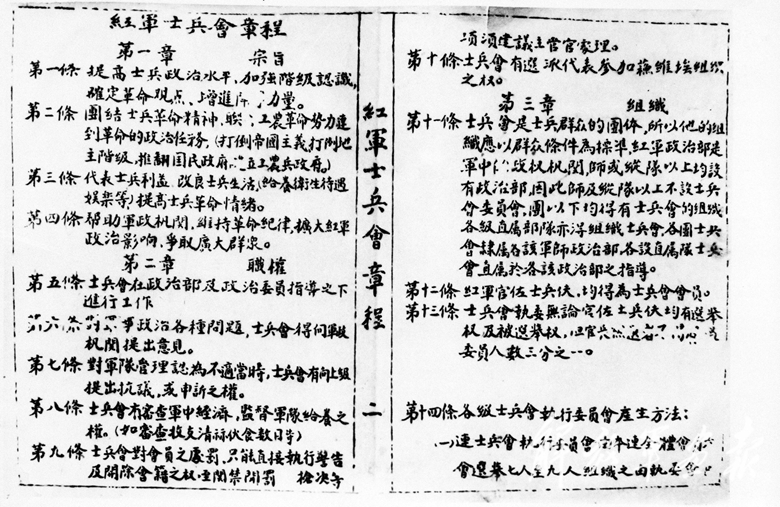 紅軍士兵會章程
第一章 宗旨
第一條 提高士兵政治水平,加強階級認識,
確定革命观点、增進 力量。
第二條 團結士兵革命精神,聯 工農革命势力達
到革命的政治任務。(打倒帝國主義打倒地
主階級,推翻国民政府, 立工農兵政府。)
第三條 代表士兵利益、改良士兵生活,(給養衛生待遇
娱樂等)提高士兵革命情緒。
第四條 帮助軍政机関,維持革命纪律,擴大紅軍
政治影响,爭取廣大群眾。
第二章 職權
第五條 士兵會在政治部及政治委員指導之下
進行工作
第六條 對 事政治各種問題,士兵會得向軍政
机関提出意見。
第七條 對軍隊管理認為不適當時,士兵會有向上級
提出抗議,或申訴之權。
第八條 士兵會有審查軍中經濟,監督軍隊給養之
權。(如審查收支清 伙食數目等)
第九條 士兵會對會員之處罰,只能直接執行警告
及開除會籍之权 禁閉罰 槍决等
紅軍士兵會章程 二
項須建議主管官處理。
第十條 士兵會有選派代表參加蘇維埃組織
之权。
第三章 組織
第十一條 士兵會是士兵群众的團体,所以他的組
織應以群众條件為標準,紅軍政治部是
軍中 政权机関,師或縱隊以上均設
有政治部,因此師及縱隊以上不設士兵
會委員會,團以下均得有士兵會的組織
各級直属部隊亦得組織士兵會各團士兵
會隸属各該軍師政治部,各設直属隊士兵
會直属於各該政治部之指導。
第十二條 紅軍官佐士兵伕,均得為士兵會會員。
第十三條 士兵會執委無論官佐士兵伕均有選举
权及被選举权,但官兵
委員人數三分之一。
第十四條 各級士兵會執行委員會產生方法:
一)連士兵會執行委員會由全連全體會
會選举七人至九人組織之由執委會
解放军画报